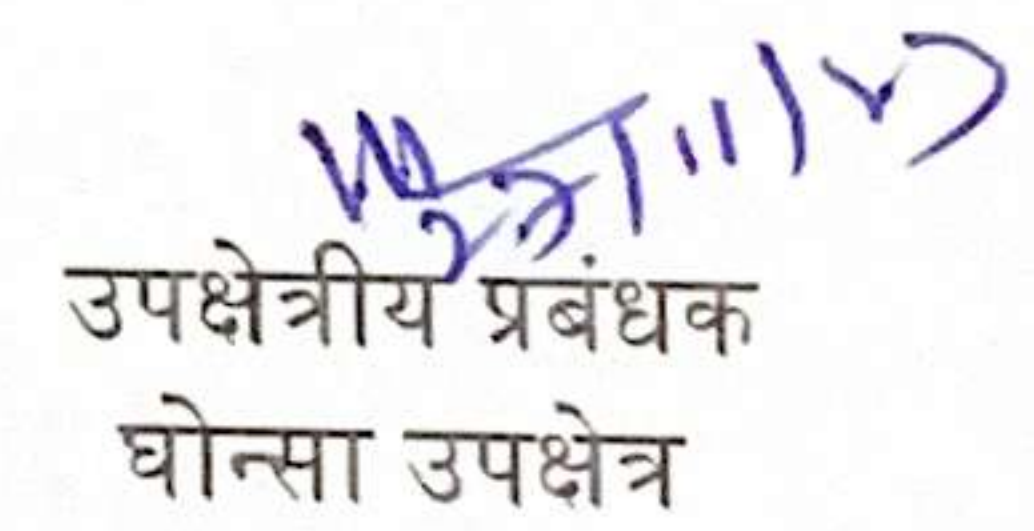 उपक्षेत्रीय प्रबंधक
घोन्सा उपक्षेत्र